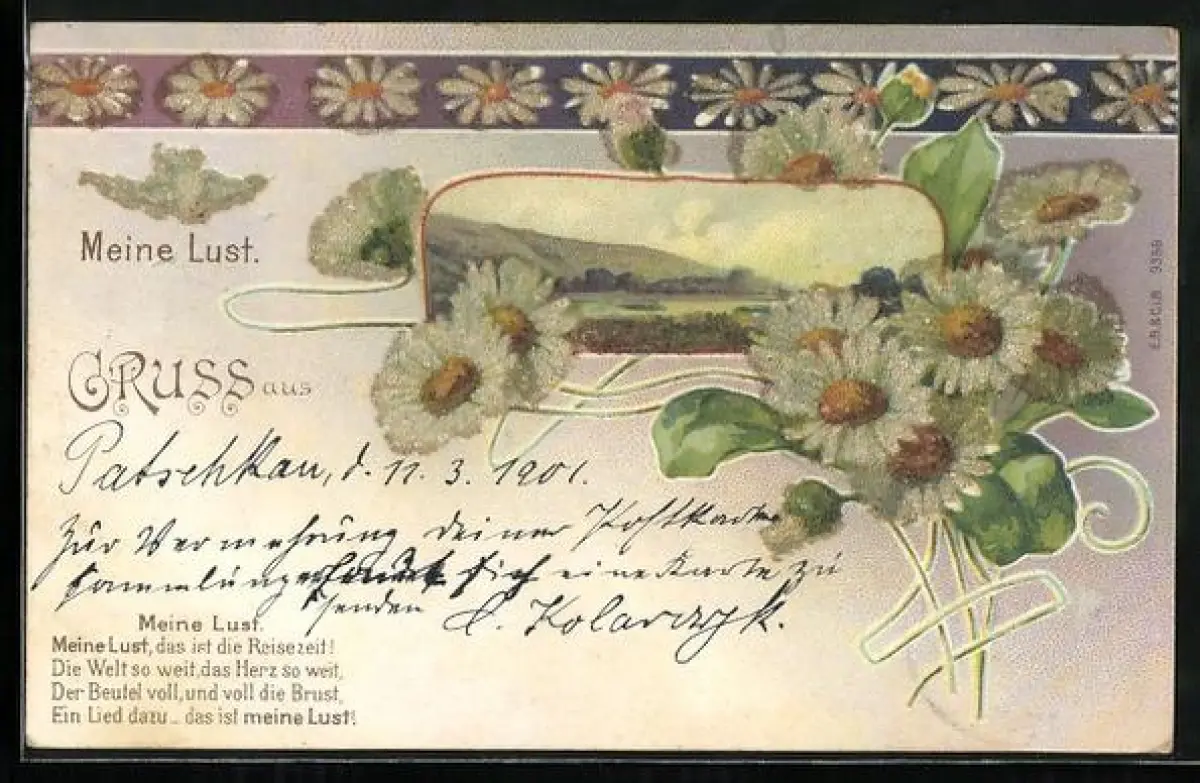 Meine Lust.
GRUSS aus
Patschkau, d. 11. 3. 1901.
Zur Vermehrung deiner Postkarten
sammlung sich eine Karte zu
senden C. Kolarczyk.
Meine Lust.
Meine Lust, das ist die Reisezeit!
Die Welt so weit, das Herz so weit,
Der Beutel voll, und voll die Brust,
Ein Lied dazu _ das ist meine Lust!